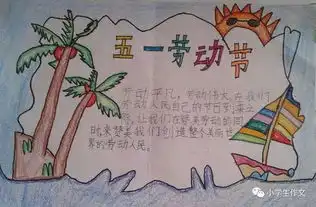 五一劳动节
劳动平凡，劳动伟大，在我们
劳动人民自己的节日到来之
际，让我们在赞美劳动的同
时，来赞美我们创造整个美丽世
界的劳动人民。
小学生作文